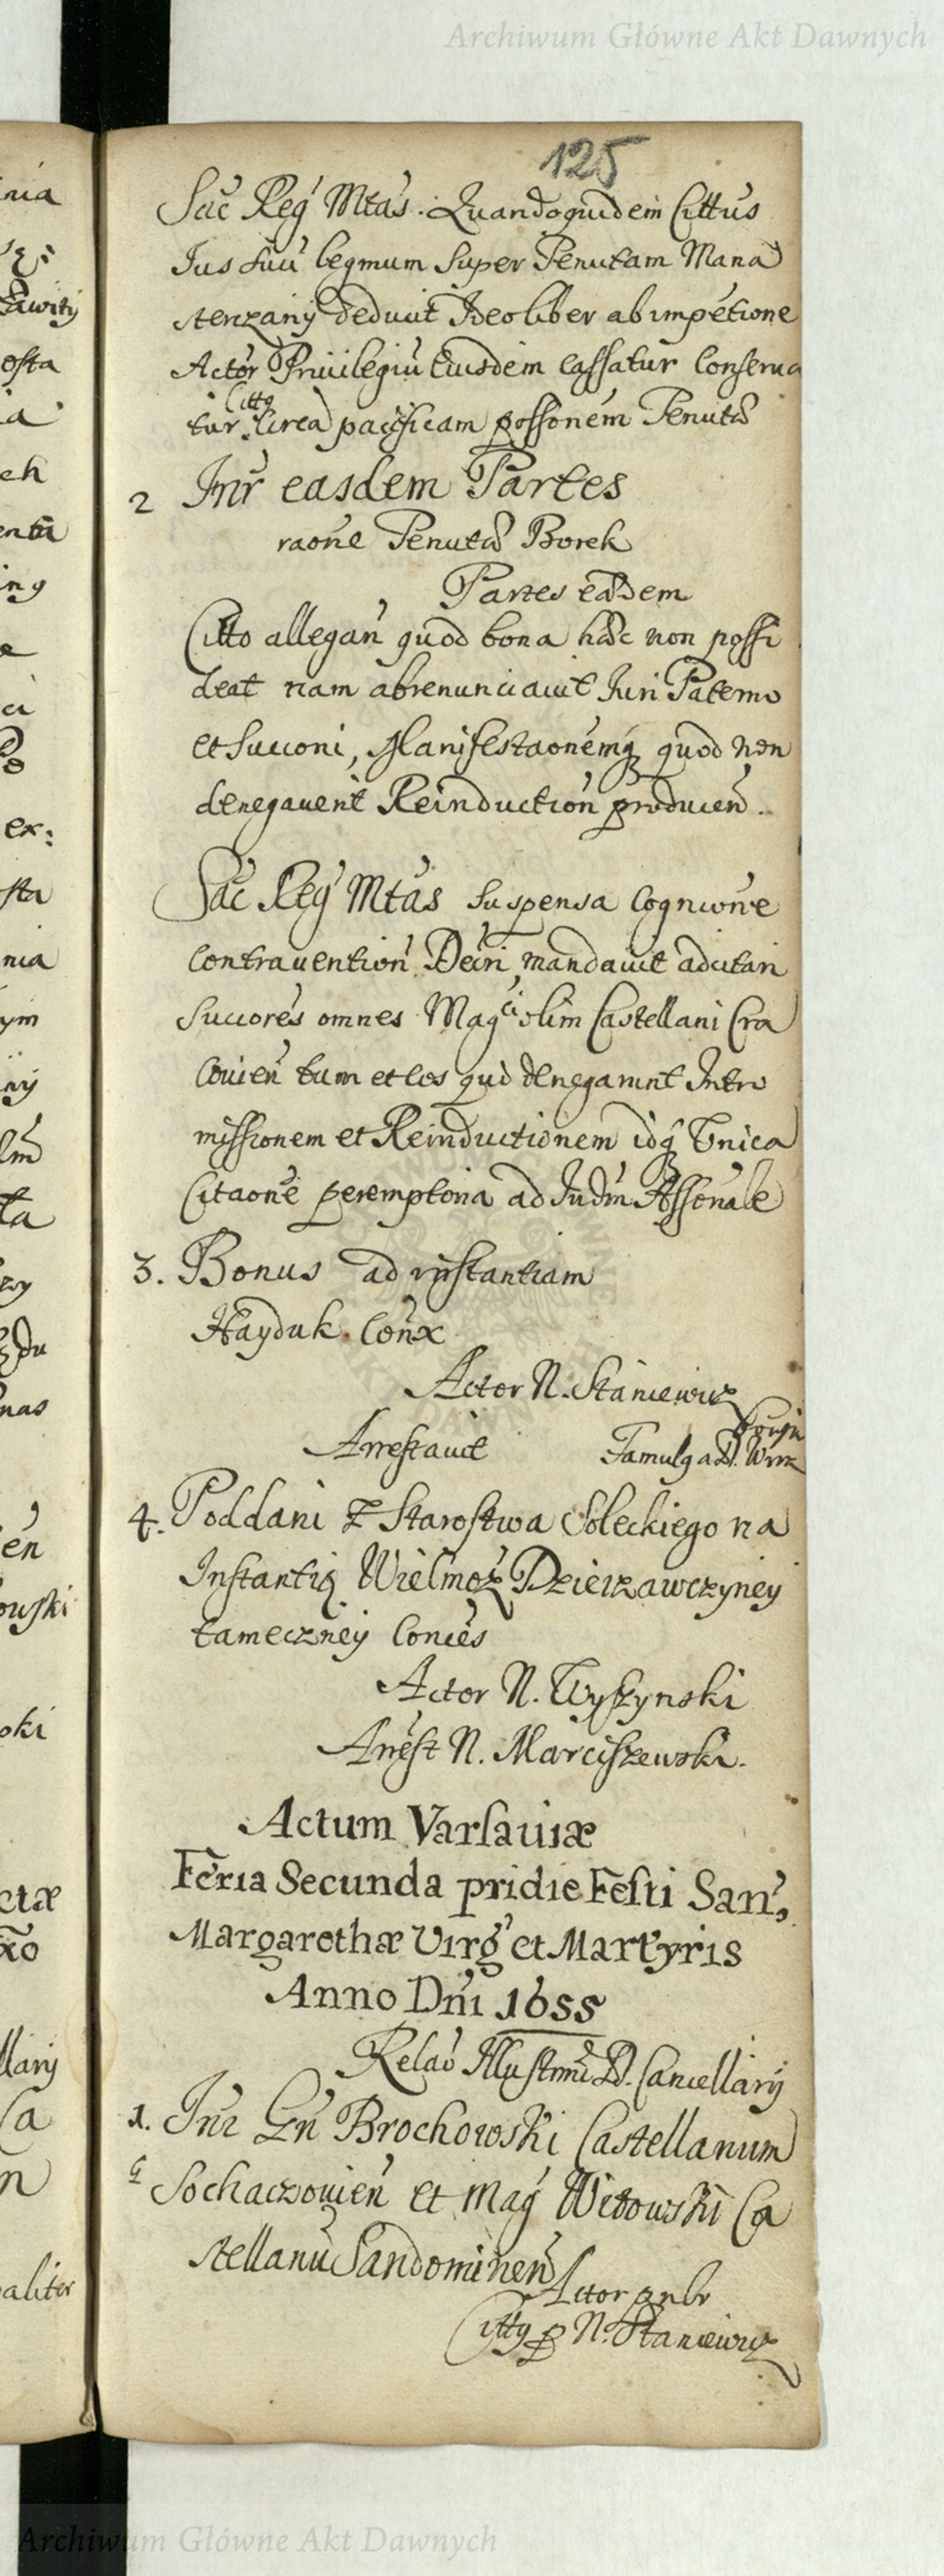 Archiwum Główne Akt Dawnych
125
Sac Reg Mtas. Quandoquidem Cittus
Ius suu legmum super Tenutam Mana
sterzany deduxit Ideo liber ab impetione
Actor Priuilegiu Eiusdem cassatur Conserua
Citto
tur. Circa pacificam possonem Tenutæ
2 Inr easdem Partes
raone Tenutæ Borek
Partes eædem
Citto allegan quod bona hæc non possi
deat nam abrenunciauit Iuri Paterno
et Succoni, Manifestaonemq quod non
denegauerit Reinduction producen.
Sac Reg Mtas suspensa Cognicone
Contrauention Decri mandauit adcitari
Succores omnes Magci olim Castellani Cra
couien tum et eos qui denegarunt Intro
missionem et Reinductionem idq Unica
Citaone peremptoria ad Iudm Assonale
3. Bonus ad instantiam
Hayduk Conx
Actor N. Staniewicz
Arrestauit Famulg a D.
4. Poddani z Starostwa Soleckiego na
Instantią Wielmoż Dzierzawczyney
tameczney Conces
Actor N. Wyszynski
Arrest N. Marciszewski.
Actum Varsauiæ
Feria Secunda pridie Festi San,
Margarethæ Virg et Martyris
Anno Dni 1655
Relao Illustrmi D. Cancellarij
1. Inr Gn Brochowski Castellanum
Sochaczouien et Mag Witowski Ca
stellanu Sandomirien
Actor
Cittg p N. Staniewicz
nia
ławity
osta
ia
ch
ing
ci
ex:
sta
nia
ym
ny
ta
nas
en
owski
ski
ctæ
xo
llarij
Ca
n
aliter
Archiwum Główne Akt Dawnych